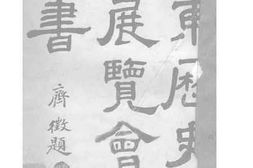 東歷史
展覽會
書
齊徵題